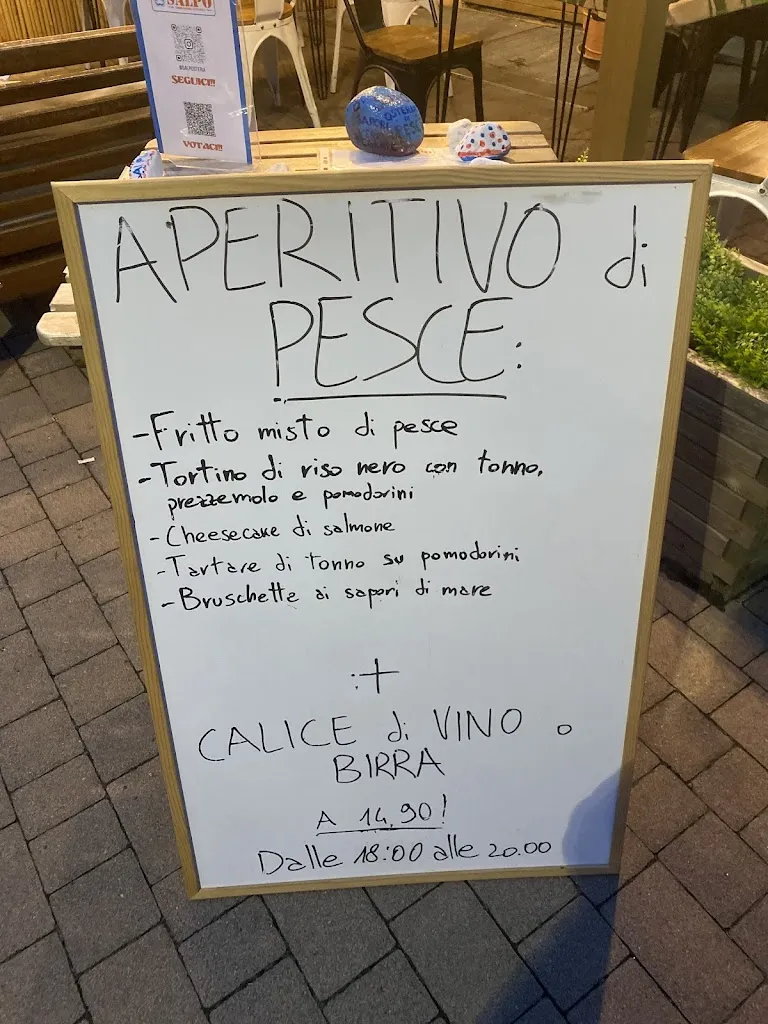 SALPO
SEGUICI!!!
VOTACI!!!
APERITIVO di
PESCE:
- Fritto misto di pesce
- Tortino di riso nero con tonno,
prezzemolo e pomodorini
- Cheesecake di salmone
- Tartare di tonno su pomodorini
- Bruschette ai sapori di mare
:+
CALICE di VINO o
BIRRA
A 14,90!
Dalle 18:00 alle 20.00